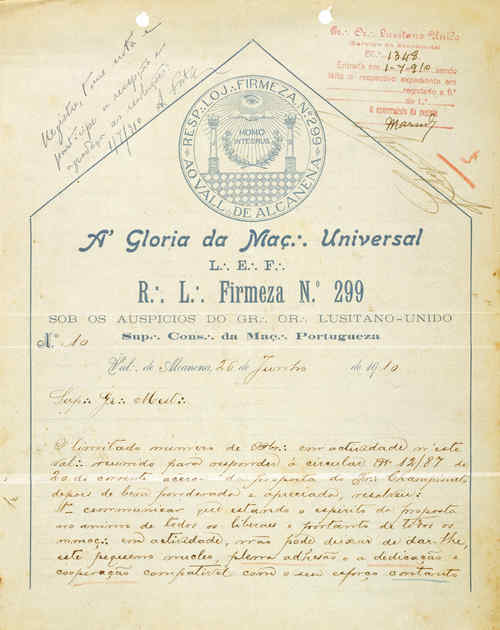 Gr.·. Or.·. Lusitano Unido
(Serviço de Secretaria)
N.º 1348
Entrada em 1-7-910 sendo
feito o respectivo expediente em
registado a fl.
do L.º
Registe,
participe a recepção e
agradeça as
1/7/910
RESP.·. LOJ.·. FIRMEZA N.º 299
HOMO
INTEGRUS
AO VALL.·. DE ALCANENA
A' Gloria da Maç.·. Universal
L.·. E.·. F.·.
R.·. L.·. Firmeza N.º 299
SOB OS AUSPICIOS DO GR.·. OR.·. LUSITANO-UNIDO
Sup.·. Cons.·. da Maç.·. Portugueza
N.º 10
Val.·. de Alcanena, 26 de Junho de 1910
Sap.·. Gr.·. Mest.·.
O limitado numero de Obr.·. em actividade n'este
val.·. reunido para responder á circular Nº 12/87 de
20 do corrente acerca da proposta do Ir.·.
depois de bem ponderada e apreciada, resolveu:
communicar que estando o espirito da proposta
no animo de todos os liberaes e portanto de todos os
em actividade, não pode deixar de dar-lhe,
este pequeno nucleo, plena adhesão e a dedicação e
cooperação compativel com o seu esforço constante